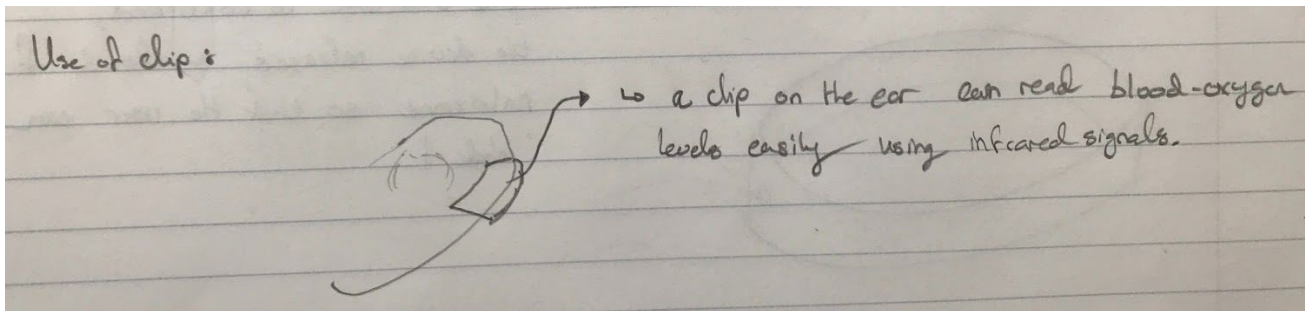 Use of clip:
↳ a clip on the ear can read blood-oxygen
levels easily using infrared signals.